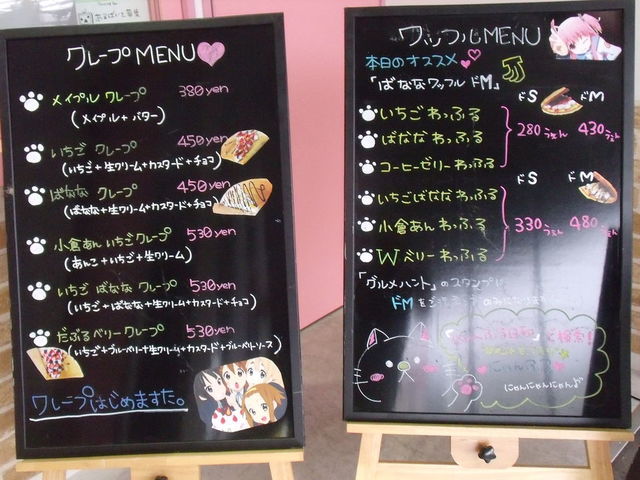 クレープMENU
メイプル クレープ 380yen
(メイプル+バター)
いちご クレープ 450yen
(いちご+生クリーム+カスタード+チョコ)
ばなな クレープ 450yen
(ばなな+生クリーム+カスタード+チョコ)
小倉あん いちごクレープ 530yen
(あんこ+いちご+生クリーム)
いちご ばなな クレープ 530yen
(いちご+ばなな+生クリーム+カスタード+チョコ)
だぶるベリークレープ 530yen
(いちご+ブルーベリー+生クリーム+カスタード+ブルーベリーソース)
クレープはじめました。
ワッフルMENU
本日のオススメ
「ばななワッフル ドM」
ドS ドM
いちごわっふる
ばなな わっふる
コーヒーゼリーわっふる
280 430
ドS ドM
いちごばなな わっふる
小倉あん わっふる
Wベリーわっふる
330 480
「グルメハント」のスタンプは
ドMを
にゃんにゃんにゃん♪